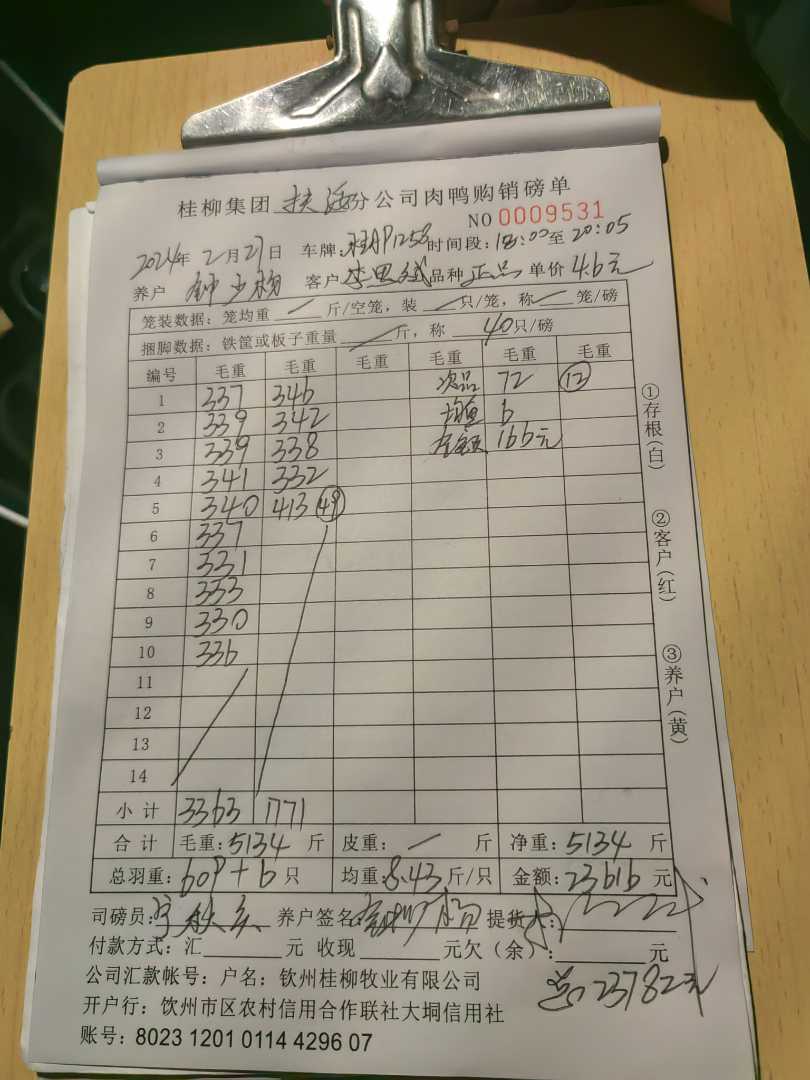 桂柳集团 扶绥 分公司肉鸭购销磅单
NO 0009531
2024年 2月27日 车牌: 桂AP1258 时间段: 18:00至 20:05
养户 客户 品种 正品 单价 4.6元
笼装数据: 笼均重 / 斤/空笼, 装 / 只/笼, 称 / 笼/磅
捆脚数据: 铁筐或板子重量 / 斤, 称 40只/磅
编号 毛重 毛重 毛重 毛重 毛重 毛重
1 337 346 次品 72 12
2 339 342 均重 6
3 339 338 金额 166元
4 341 332
5 340 413 49
6 337
7 331
8 333
9 330
10 336
11
12
13
14
小计 3363 1771
合计 毛重: 5134 斤 皮重: — 斤 净重: 5134 斤
总羽重: 609+6 只 均重: 8.43 斤/只 金额: 23616 元
司磅员: 养户签名: 提货人:
付款方式: 汇 元 收现 元欠(余): 元
公司汇款帐号: 户名: 钦州桂柳牧业有限公司
总: 23782元
开户行: 钦州市区农村信用合作联社大垌信用社
账号: 8023 1201 0114 4296 07
①存根(白)
②客户(红)
③养户(黄)